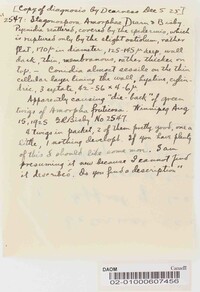 [Copy of diagnosis by Dearness Dec 5 25]
2547. Stagonospora Amorphae Dearn & Bisby
Pycnidia scattered, covered by the epidermis, which
is ruptured only by the slight ostiolum, rather
flat, 170μ in diameter, 125-145μ deep, wall
dark, thin, membranous, rather thicker on
top. – Conidia almost sessile on the thin
cellular layer lining the wall, hyaline, cylin-
dric, 3 septate, 42-56 × 4-6μ
Apparently causing "die-back" of green
twigs of Amorpha fruticosa Winnipeg Aug
15, 1925 GR Bisby No 2547
4 twigs in packet, 2 of them pretty good, one a
little, 1 nothing developt. If you have plenty
of this I should like some more. I am
presuming it new because I cannot find
it described. Do you find a description
DAOM
Canada
02-01000607456